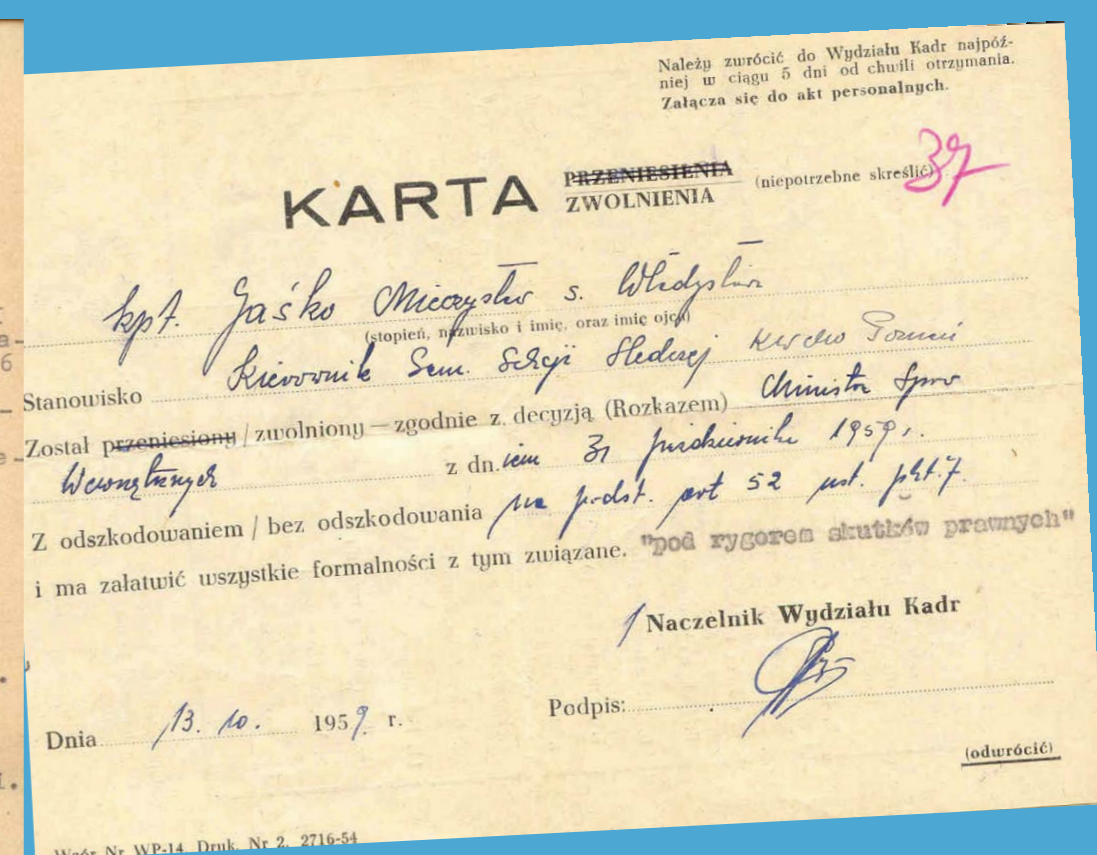 Należy zwrócić do Wydziału Kadr najpóź-
niej w ciągu 5 dni od chwili otrzymania.
Załącza się do akt personalnych.
37
KARTA PRZENIESIENIA
ZWOLNIENIA (niepotrzebne skreślić)
kpt. Jaśko Mieczysław s. Władysława
(stopień, nazwisko i imię, oraz imię ojca)
Stanowisko Kierownik Sam. Sekcji Śledczej
Został przeniesiony / zwolniony — zgodnie z decyzją (Rozkazem) Ministra Spraw
Wewnętrznych z dniem 31 października 1959 r.
Z odszkodowaniem / bez odszkodowania na podst. art 52 ust. pkt. 7.
i ma załatwić wszystkie formalności z tym związane. "pod rygorem skutków prawnych"
Naczelnik Wydziału Kadr
Podpis:
Dnia 13. 10. 1959 r.
(odwrócić)
Wzór Nr WP-14 Druk. Nr 2. 2716-54